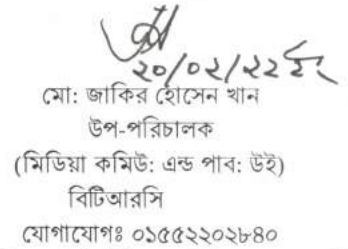 ২০/০২/২২ ইং
মো: জাকির হোসেন খান
উপ-পরিচালক
(মিডিয়া কমিউ: এন্ড পাব: উইং)
বিটিআরসি
যোগাযোগঃ ০১৫৫২২০২৮৪০